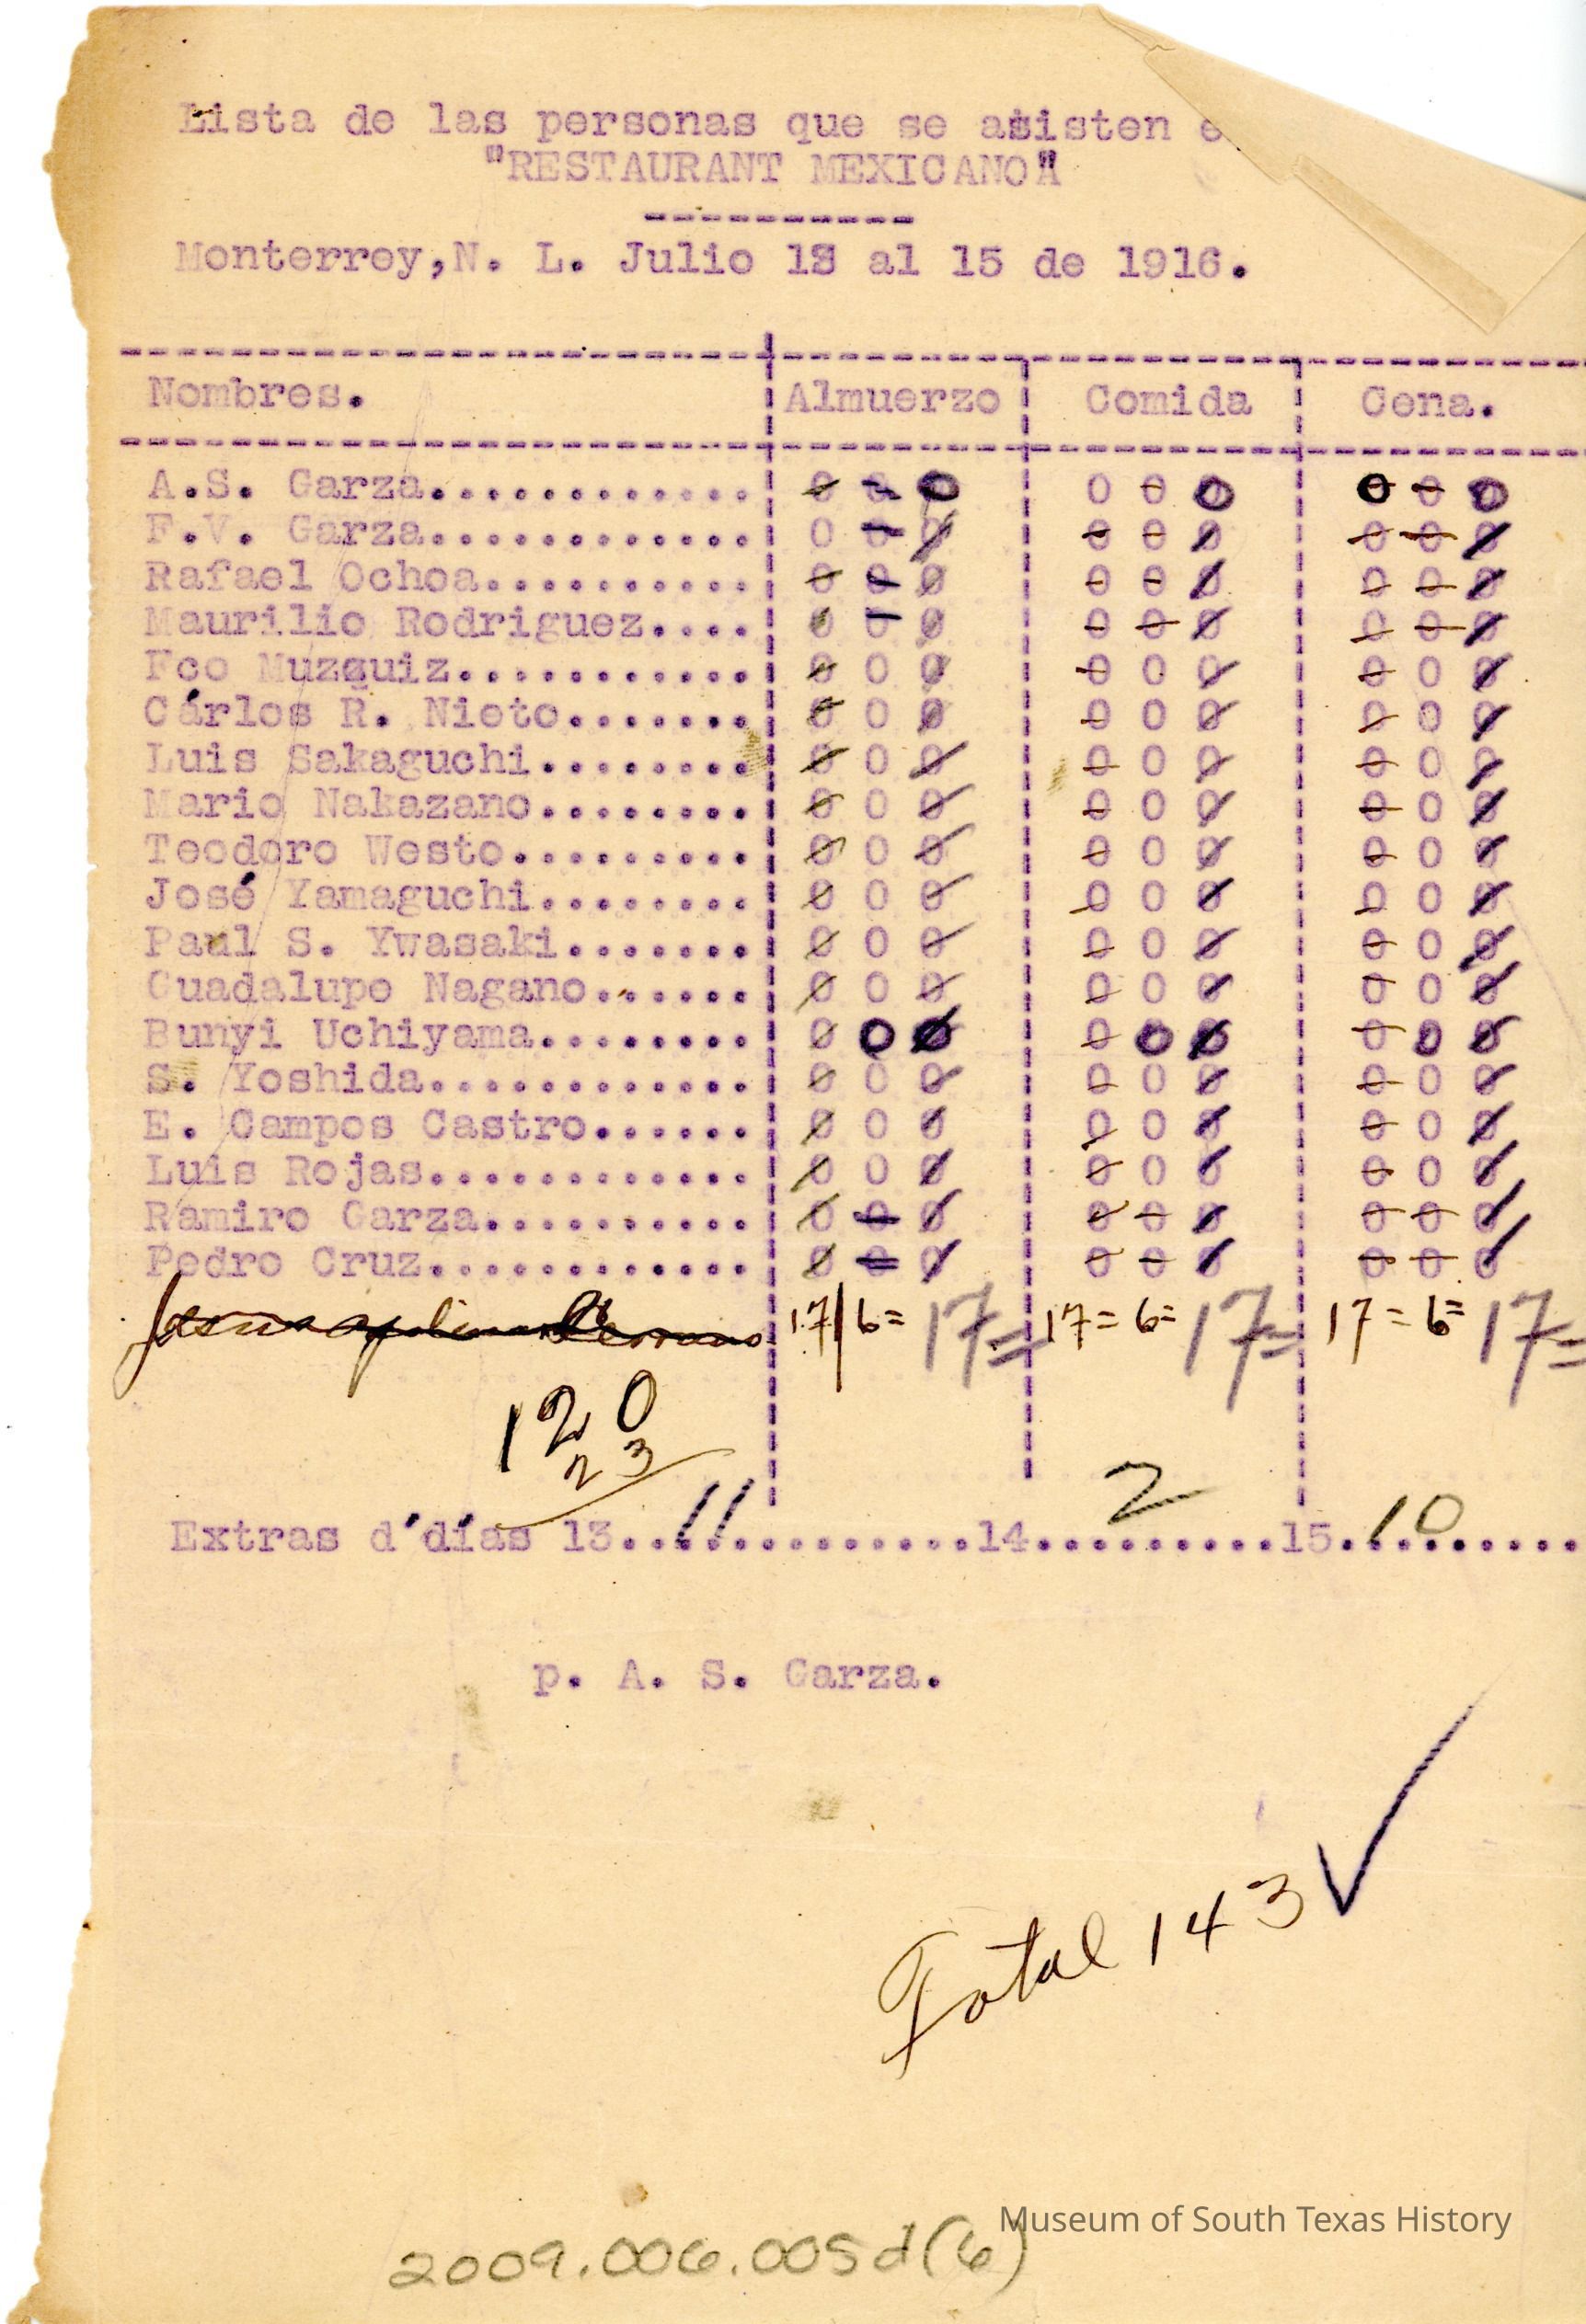 Lista de las personas que se asisten e
"RESTAURANT MEXICANO"
-----------
Monterrey, N. L. Julio 13 al 15 de 1916.
Nombres. Almuerzo Comida Cena.
A.S. Garza............ 0 0 0 0 0 0 0 0 0
F.V. Garza............ 0 0 0 0 0 0 0 0 0
Rafael Ochoa.......... 0 0 0 0 0 0 0 0 0
Maurilio Rodriguez.... 0 0 0 0 0 0 0 0 0
Fco Muzquiz........... 0 0 0 0 0 0 0 0 0
Cárlos R. Nieto....... 0 0 0 0 0 0 0 0 0
Luis Sakaguchi........ 0 0 0 0 0 0 0 0 0
Mario Nakazano........ 0 0 0 0 0 0 0 0 0
Teodoro Westo......... 0 0 0 0 0 0 0 0 0
José Yamaguchi........ 0 0 0 0 0 0 0 0 0
Paul S. Ywasaki....... 0 0 0 0 0 0 0 0 0
Guadalupe Nagano...... 0 0 0 0 0 0 0 0 0
Bunyi Uchiyama........ 0 0 0 0 0 0 0 0 0
S. Yoshida............ 0 0 0 0 0 0 0 0 0
E. Campos Castro...... 0 0 0 0 0 0 0 0 0
Luis Rojas............ 0 0 0 0 0 0 0 0 0
Ramiro Garza.......... 0 0 0 0 0 0 0 0 0
Pedro Cruz............ 0 0 0 0 0 0 0 0 0
17 | 6= 17= 17= 6= 17= 17= 6= 17=
120
23
Extras d'días 13..11.............14....2......15..10........
p. A. S. Garza.
Total 143 ✓
Museum of South Texas History
2009.006.005d(6)